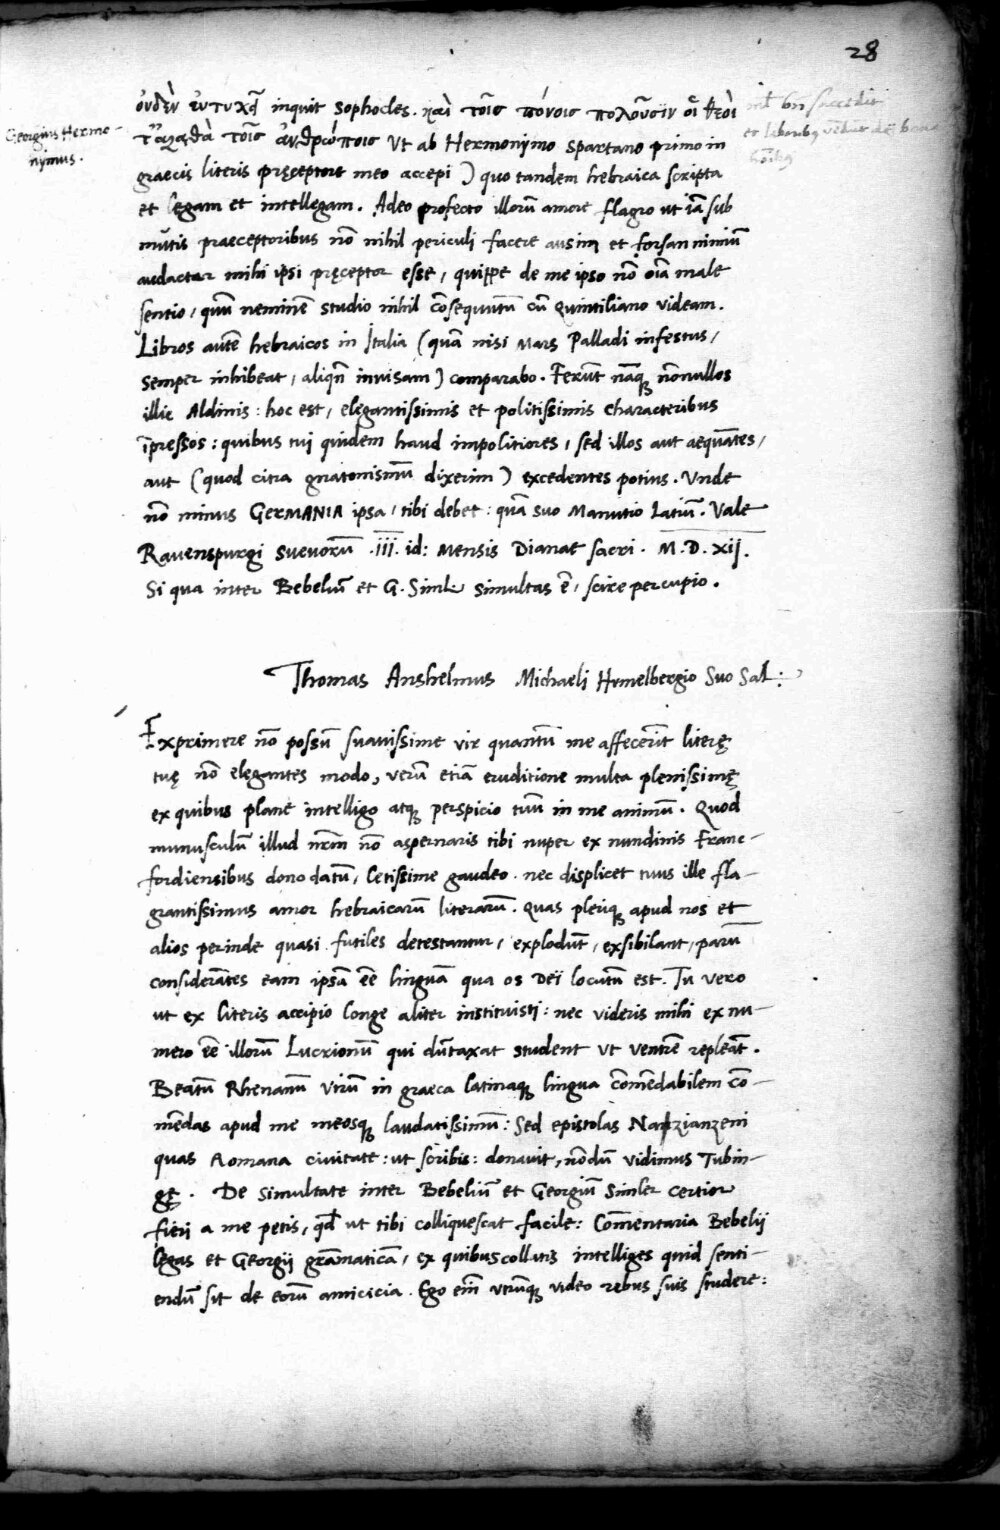 28
οὐδὲν εὐτυχεῖ inquit Sophocles. καὶ τοῖς πόνοις πολοῦσιν οἱ θεοὶ
τἀγαθὰ τοῖς ἀνθρώποις Vt ab Hermonymo Spartano primo in
Georgius Hermo-
nymus.
graecis literis pręceptore meo accepi) quo tandem hebraica scripta
et legam et intellegam. Adeo profecto illorū amore flagro ut iā sub
mutis praeceptoribus nō nihil periculi facere ausim et forsan nimiū
audacter mihi ipsi pręceptor esse, quippe de me ipso nō oīa male
sentio, quū neminē studio nihil cōsequutū cū Quintiliano videam.
Libros autē hebraicos in Italia (quā nisi Mars Palladi infestus,
semper inhibeat, aliqn̄ invisam) comparabo. Ferūt nāq; nōnullos
illic Aldinis: hoc est, elegantissimis et politissimis characteribus
īpressos: quibus tui quidem haud impolitiores, sed illos aut aequātes,
aut (quod citra gnatonismū dixerim) excedentes potius. Vnde
nō minus GERMANIA ipsa, tibi debet: quā suo Manutio Latiū. Vale
Ravenspurgi Suevorū .III. id: Mensis Dianae sacri. M.D.XII.
Si qua inter Bebeliū et G. Simler simultas ē, scire percupio.
Thomas Anshelmus Michaeli Humelbergio Suo Sal:
Exprimere nō possū suavissime vir quantū me affecerīt literę
tuę nō elegantes modo, verū etiā eruditione multa plenissimę
ex quibus plane intelligo atq; perspicio tuū in me animū. Quod
munusculū illud nr̄m nō aspernaris tibi nuper ex nundinis Franc-
fordiensibus dono datū, letissime gaudeo. nec displicet tuus ille fla-
grantissimus amor hebraicarū literarū. quas pleriq; apud nos et
alios perinde quasi futiles detestantur, explodūt, exsibilant, parū
considerātes eam ipsā eē linguā qua os Dei locutū est. Tu vero
ut ex literis accipio longe aliter instituisti: nec videris mihi ex nu-
mero eē illorū Lucrionū qui dūtaxat student ut ventrē repleāt.
Beatū Rhenanū virū in graeca latinaq; lingua cōmēdabilem cō-
mēdas apud me meosq; laudatissimū: Sed epistolas Nanzianzeni
quas Romana civitate: ut scribis: donavit, nōdū vidimus Tubin-
gę. De simultate inter Bebeliū et Georgiū Simler certior
fieri a me petis, qd̄ ut tibi colliquescat facile: Com̄entaria Bebelij
legas et Georgij grāmaticā, ex quibus collatis intelliges quid senti-
endū sit de eorū amicicia. Ego em̄ utrūq; video rebus suis studere: